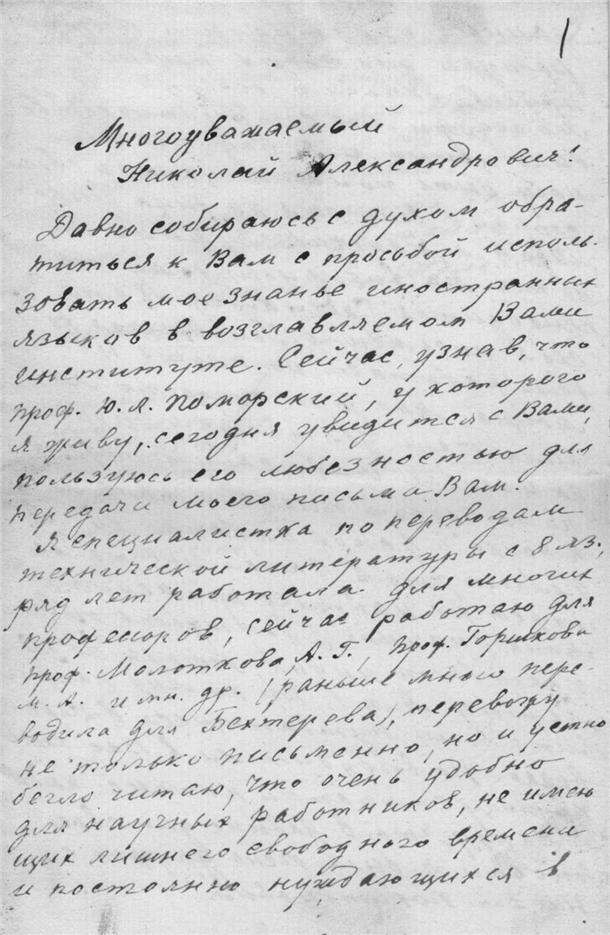 1
Многоуважаемый
Николай Александрович!
Давно собираюсь с духом обра-
титься к Вам с просьбой исполь-
зовать мое знанье иностранных
языков в возглавляемом Вами
институте. Сейчас, узнав, что
проф. Ю. Л. Поморский, у которого
я живу, сегодня увидится с Вами,
пользуюсь его любезностью для
передачи моего письма Вам.
Я специалистка по переводам
технической литературы с 8 яз.,
ряд лет работала для многих
профессоров, сейчас работаю для
проф. Молоткова, А. Г., проф. Горшкова
М. А. и мн. др. (раньше много пере-
водила для Бехтерева), перевожу
не только письменно, но и устно
бегло читаю, что очень удобно
для научных работников, не имею
щих лишнего свободного времени
и постоянно нуждающихся в